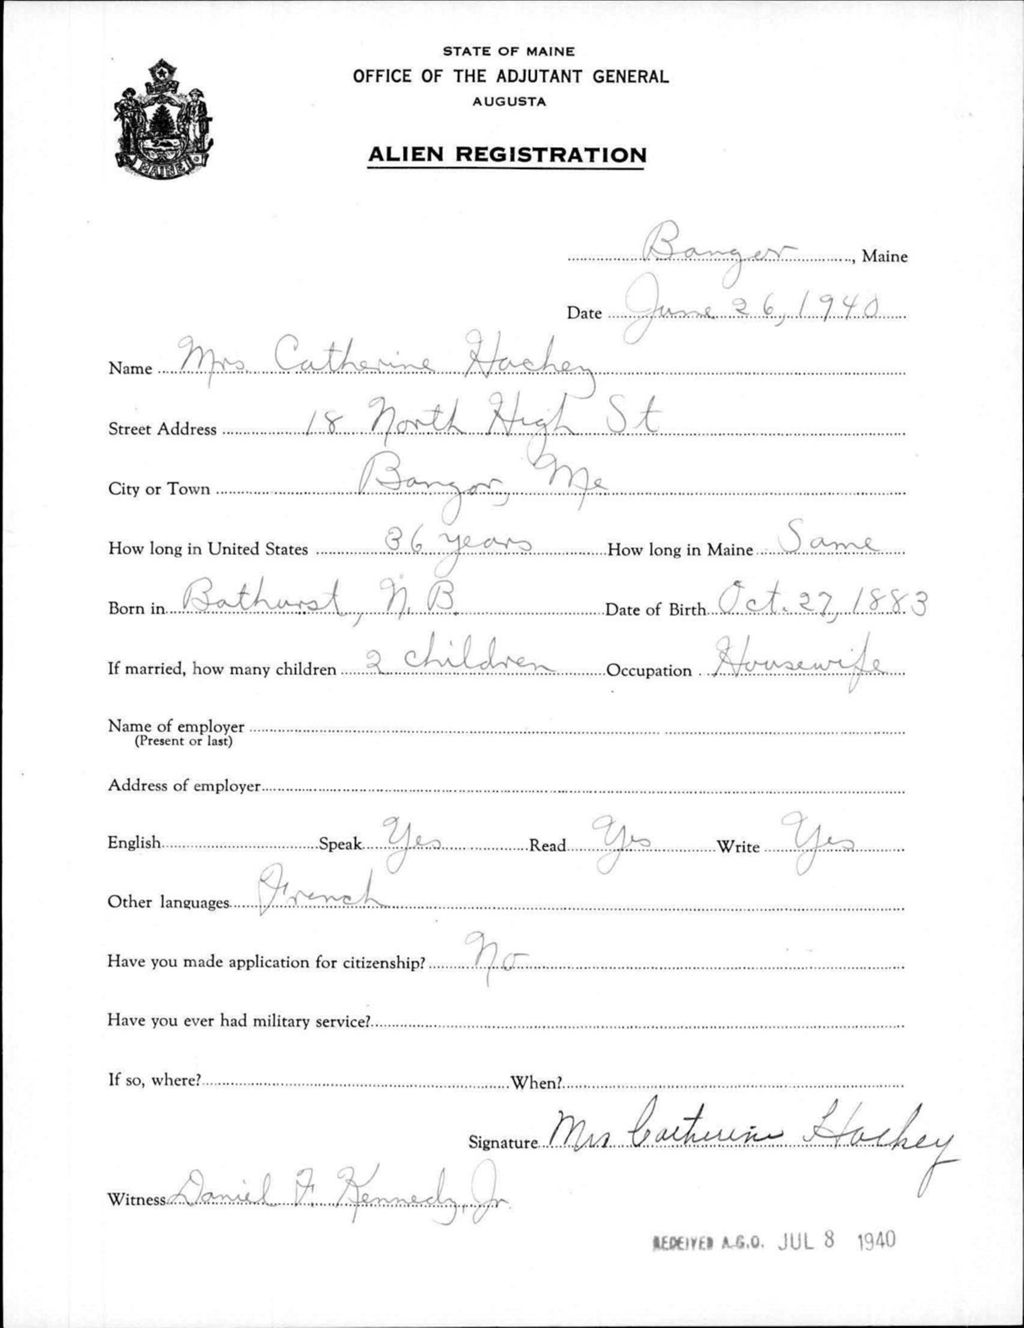 STATE OF MAINE
OFFICE OF THE ADJUTANT GENERAL
AUGUSTA
ALIEN REGISTRATION
MAINE
Bangor, Maine
Date June 26, 1940
Name Mrs. Catherine Hachey
Street Address 18 North High St
City or Town Bangor, Me
How long in United States 36 years How long in Maine Same
Born in Bathurst, N. B. Date of Birth Oct. 27, 1883
If married, how many children 2 children Occupation Housewife
Name of employer
(Present or last)
Address of employer
English Speak Yes Read Yes Write Yes
Other languages French
Have you made application for citizenship? No
Have you ever had military service?
If so, where? When?
Signature Mrs Catherine Hachey
Witness Daniel F. Kennedy, Jr.
RECEIVED A.G.O. JUL 8 1940